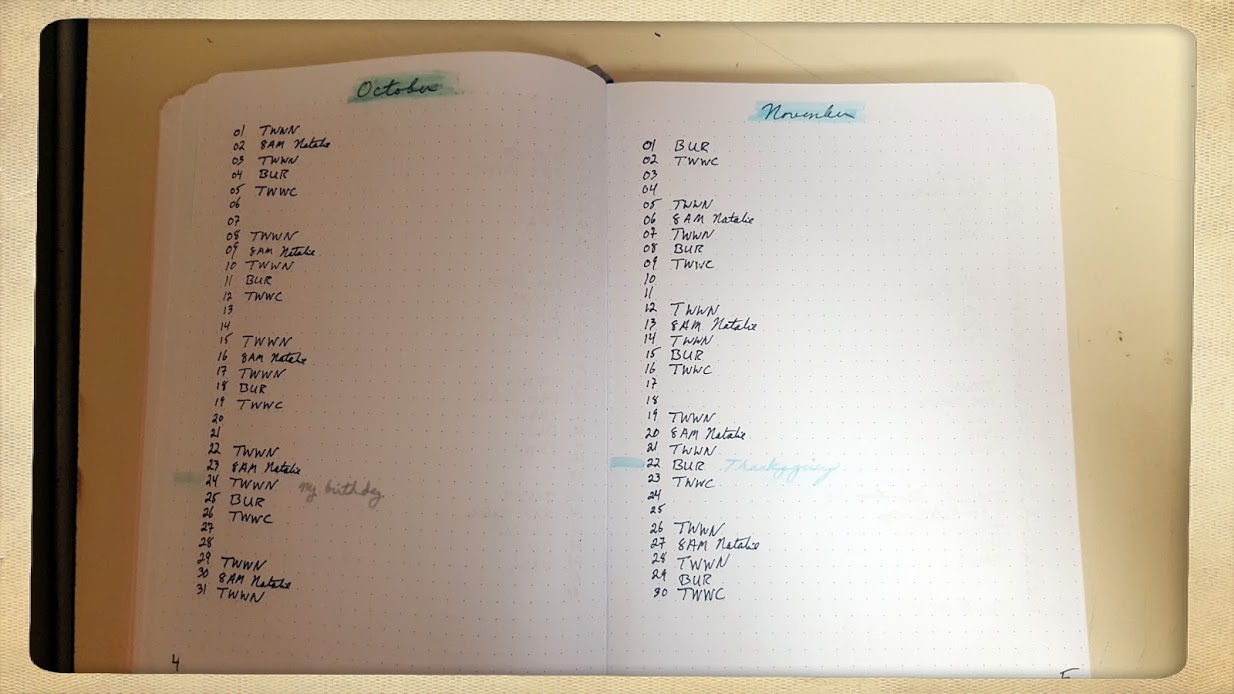 October
01 TWWN
02 8AM Natalie
03 TWWN
04 BUR
05 TWWC
06
07
08 TWWN
09 8AM Natalie
10 TWWN
11 BUR
12 TWWC
13
14
15 TWWN
16 8AM Natalie
17 TWWN
18 BUR
19 TWWC
20
21
22 TWWN
23 8AM Natalie
24 TWWN my birthday
25 BUR
26 TWWC
27
28
29 TWWN
30 8AM Natalie
31 TWWN
4
November
01 BUR
02 TWWC
03
04
05 TWWN
06 8AM Natalie
07 TWWN
08 BUR
09 TWWC
10
11
12 TWWN
13 8AM Natalie
14 TWWN
15 BUR
16 TWWC
17
18
19 TWWN
20 8AM Natalie
21 TWWN
22 BUR Thanksgiving
23 TWWC
24
25
26 TWWN
27 8AM Natalie
28 TWWN
29 BUR
30 TWWC
5